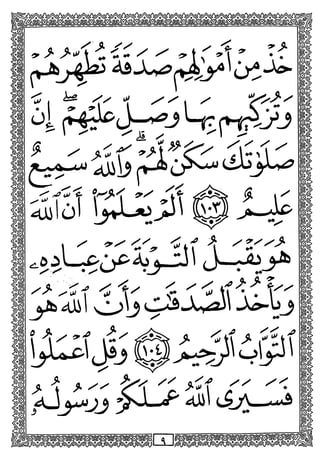 خُذْ مِنْ أَمْوَٰلِهِمْ صَدَقَةً تُطَهِّرُهُمْ
وَتُزَكِّيهِم بِهَا وَصَلِّ عَلَيْهِمْ ۖ إِنَّ
صَلَوٰتَكَ سَكَنٌ لَّهُمْ ۗ وَٱللَّهُ سَمِيعٌ
عَلِيمٌ ١٠٣ أَلَمْ يَعْلَمُوٓا۟ أَنَّ ٱللَّهَ
هُوَ يَقْبَلُ ٱلتَّوْبَةَ عَنْ عِبَادِهِۦ
وَيَأْخُذُ ٱلصَّدَقَٰتِ وَأَنَّ ٱللَّهَ هُوَ
ٱلتَّوَّابُ ٱلرَّحِيمُ ١٠٤ وَقُلِ ٱعْمَلُوا۟
فَسَيَرَى ٱللَّهُ عَمَلَكُمْ وَرَسُولُهُۥ
٩